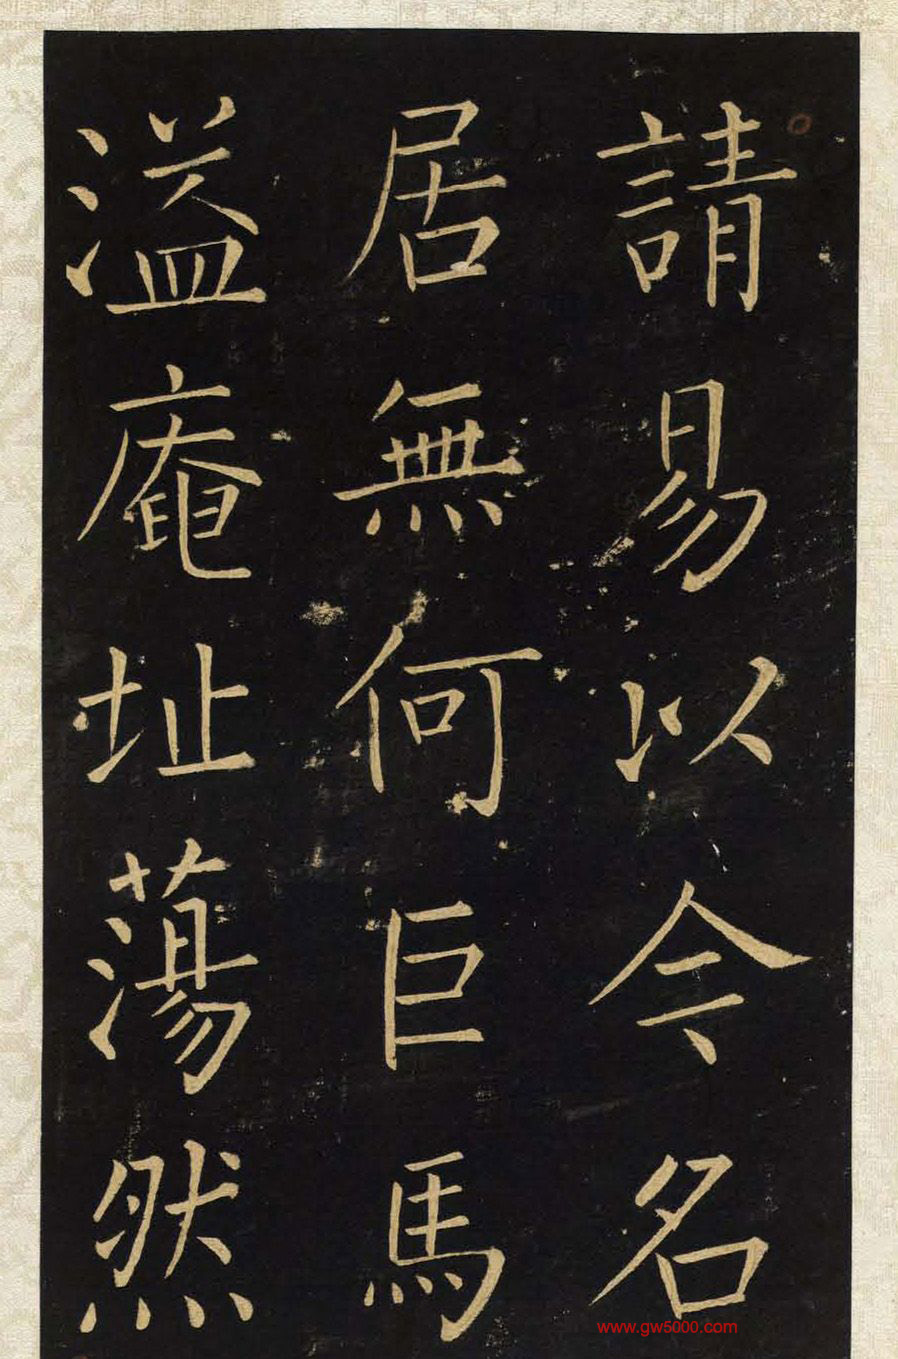 請易以令名
居無何巨馬
溢庵址蕩然
www.gw5000.com